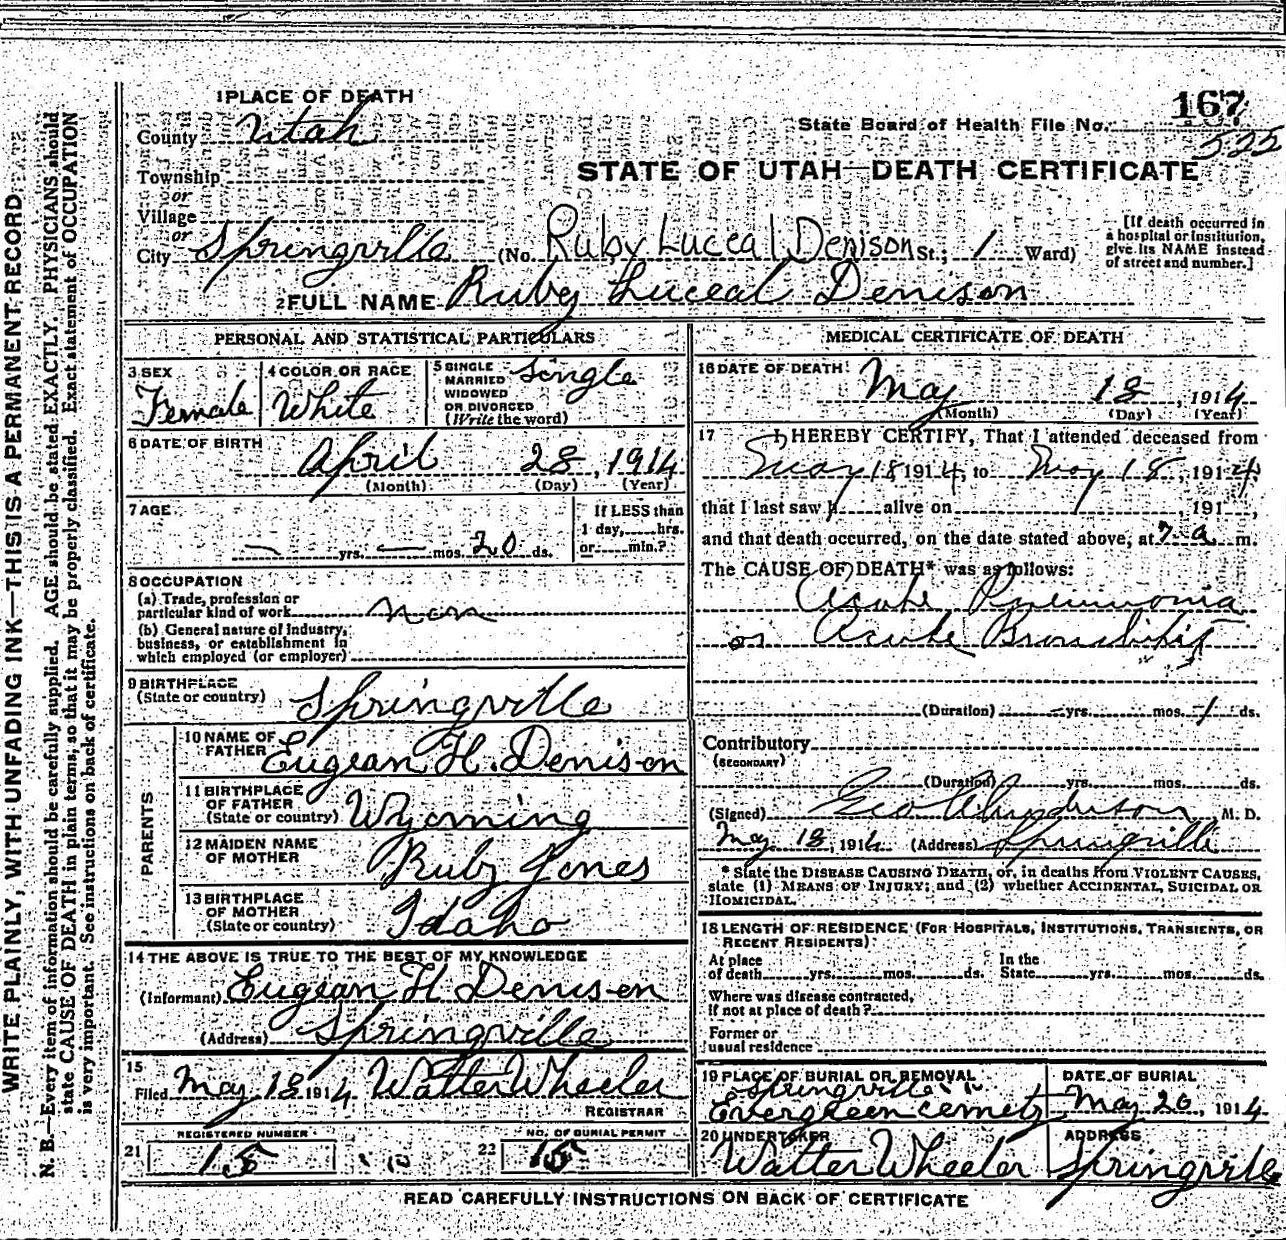 WRITE PLAINLY, WITH UNFADING INK—THIS IS A PERMANENT RECORD
N. B.—Every item of information should be carefully supplied. AGE should be stated EXACTLY. PHYSICIANS should
state CAUSE OF DEATH in plain terms, so that it may be properly classified. Exact statement of OCCUPATION
is very important. See instructions on back of certificate.
1 PLACE OF DEATH
County Utah
Township
or
Village
or
City Springville (No. Ruby Luceal Denison St.; 1 Ward)
State Board of Health File No. 167
525
STATE OF UTAH—DEATH CERTIFICATE
[If death occurred in
a hospital or institution,
give its NAME instead
of street and number.]
2 FULL NAME Ruby Luceal Denison
PERSONAL AND STATISTICAL PARTICULARS
3 SEX
Female
4 COLOR OR RACE
White
5 SINGLE
MARRIED
WIDOWED
OR DIVORCED
(Write the word)
Single
6 DATE OF BIRTH
April 28, 1914
(Month) (Day) (Year)
7 AGE
— yrs. — mos. 20 ds.
If LESS than
1 day, hrs.
or min.?
8 OCCUPATION
(a) Trade, profession or
particular kind of work non
(b) General nature of industry,
business, or establishment in
which employed (or employer)
9 BIRTHPLACE
(State or country) Springville
PARENTS
10 NAME OF
FATHER Eugean H. Denison
11 BIRTHPLACE
OF FATHER
(State or country) Wyoming
12 MAIDEN NAME
OF MOTHER Ruby Jones
13 BIRTHPLACE
OF MOTHER
(State or country) Idaho
14 THE ABOVE IS TRUE TO THE BEST OF MY KNOWLEDGE
(Informant) Eugean H Denison
(Address) Springville
15
Filed May 18 1914 Walter Wheeler
REGISTRAR
21 REGISTERED NUMBER 15
22 NO. OF BURIAL PERMIT 15
MEDICAL CERTIFICATE OF DEATH
16 DATE OF DEATH
May 18, 1914
(Month) (Day) (Year)
17 I HEREBY CERTIFY, That I attended deceased from
May 18 1914, to May 18, 1914
that I last saw h alive on , 191 ,
and that death occurred, on the date stated above, at 7 a m.
The CAUSE OF DEATH* was as follows:
Acute Pneumonia
or Acute Bronchitis
(Duration) — yrs. mos. 1 ds.
Contributory
(SECONDARY)
(Duration) yrs. mos. ds.
(Signed) Geo Anderson, M. D.
May 18, 1914 (Address) Springville
* State the DISEASE CAUSING DEATH, or, in deaths from VIOLENT CAUSES,
state (1) MEANS OF INJURY; and (2) whether ACCIDENTAL, SUICIDAL OR
HOMICIDAL.
18 LENGTH OF RESIDENCE (FOR HOSPITALS, INSTITUTIONS, TRANSIENTS, OR
RECENT RESIDENTS)
At place
of death yrs. mos. ds.
In the
State yrs. mos. ds.
Where was disease contracted,
if not at place of death?
Former or
usual residence
19 PLACE OF BURIAL OR REMOVAL
Springville
Evergreen cemety
DATE OF BURIAL
May 20, 1914
20 UNDERTAKER
Walter Wheeler
ADDRESS
Springville
READ CAREFULLY INSTRUCTIONS ON BACK OF CERTIFICATE